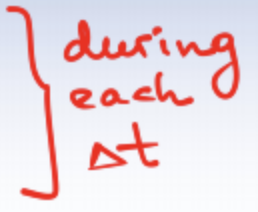 during
each
Δt